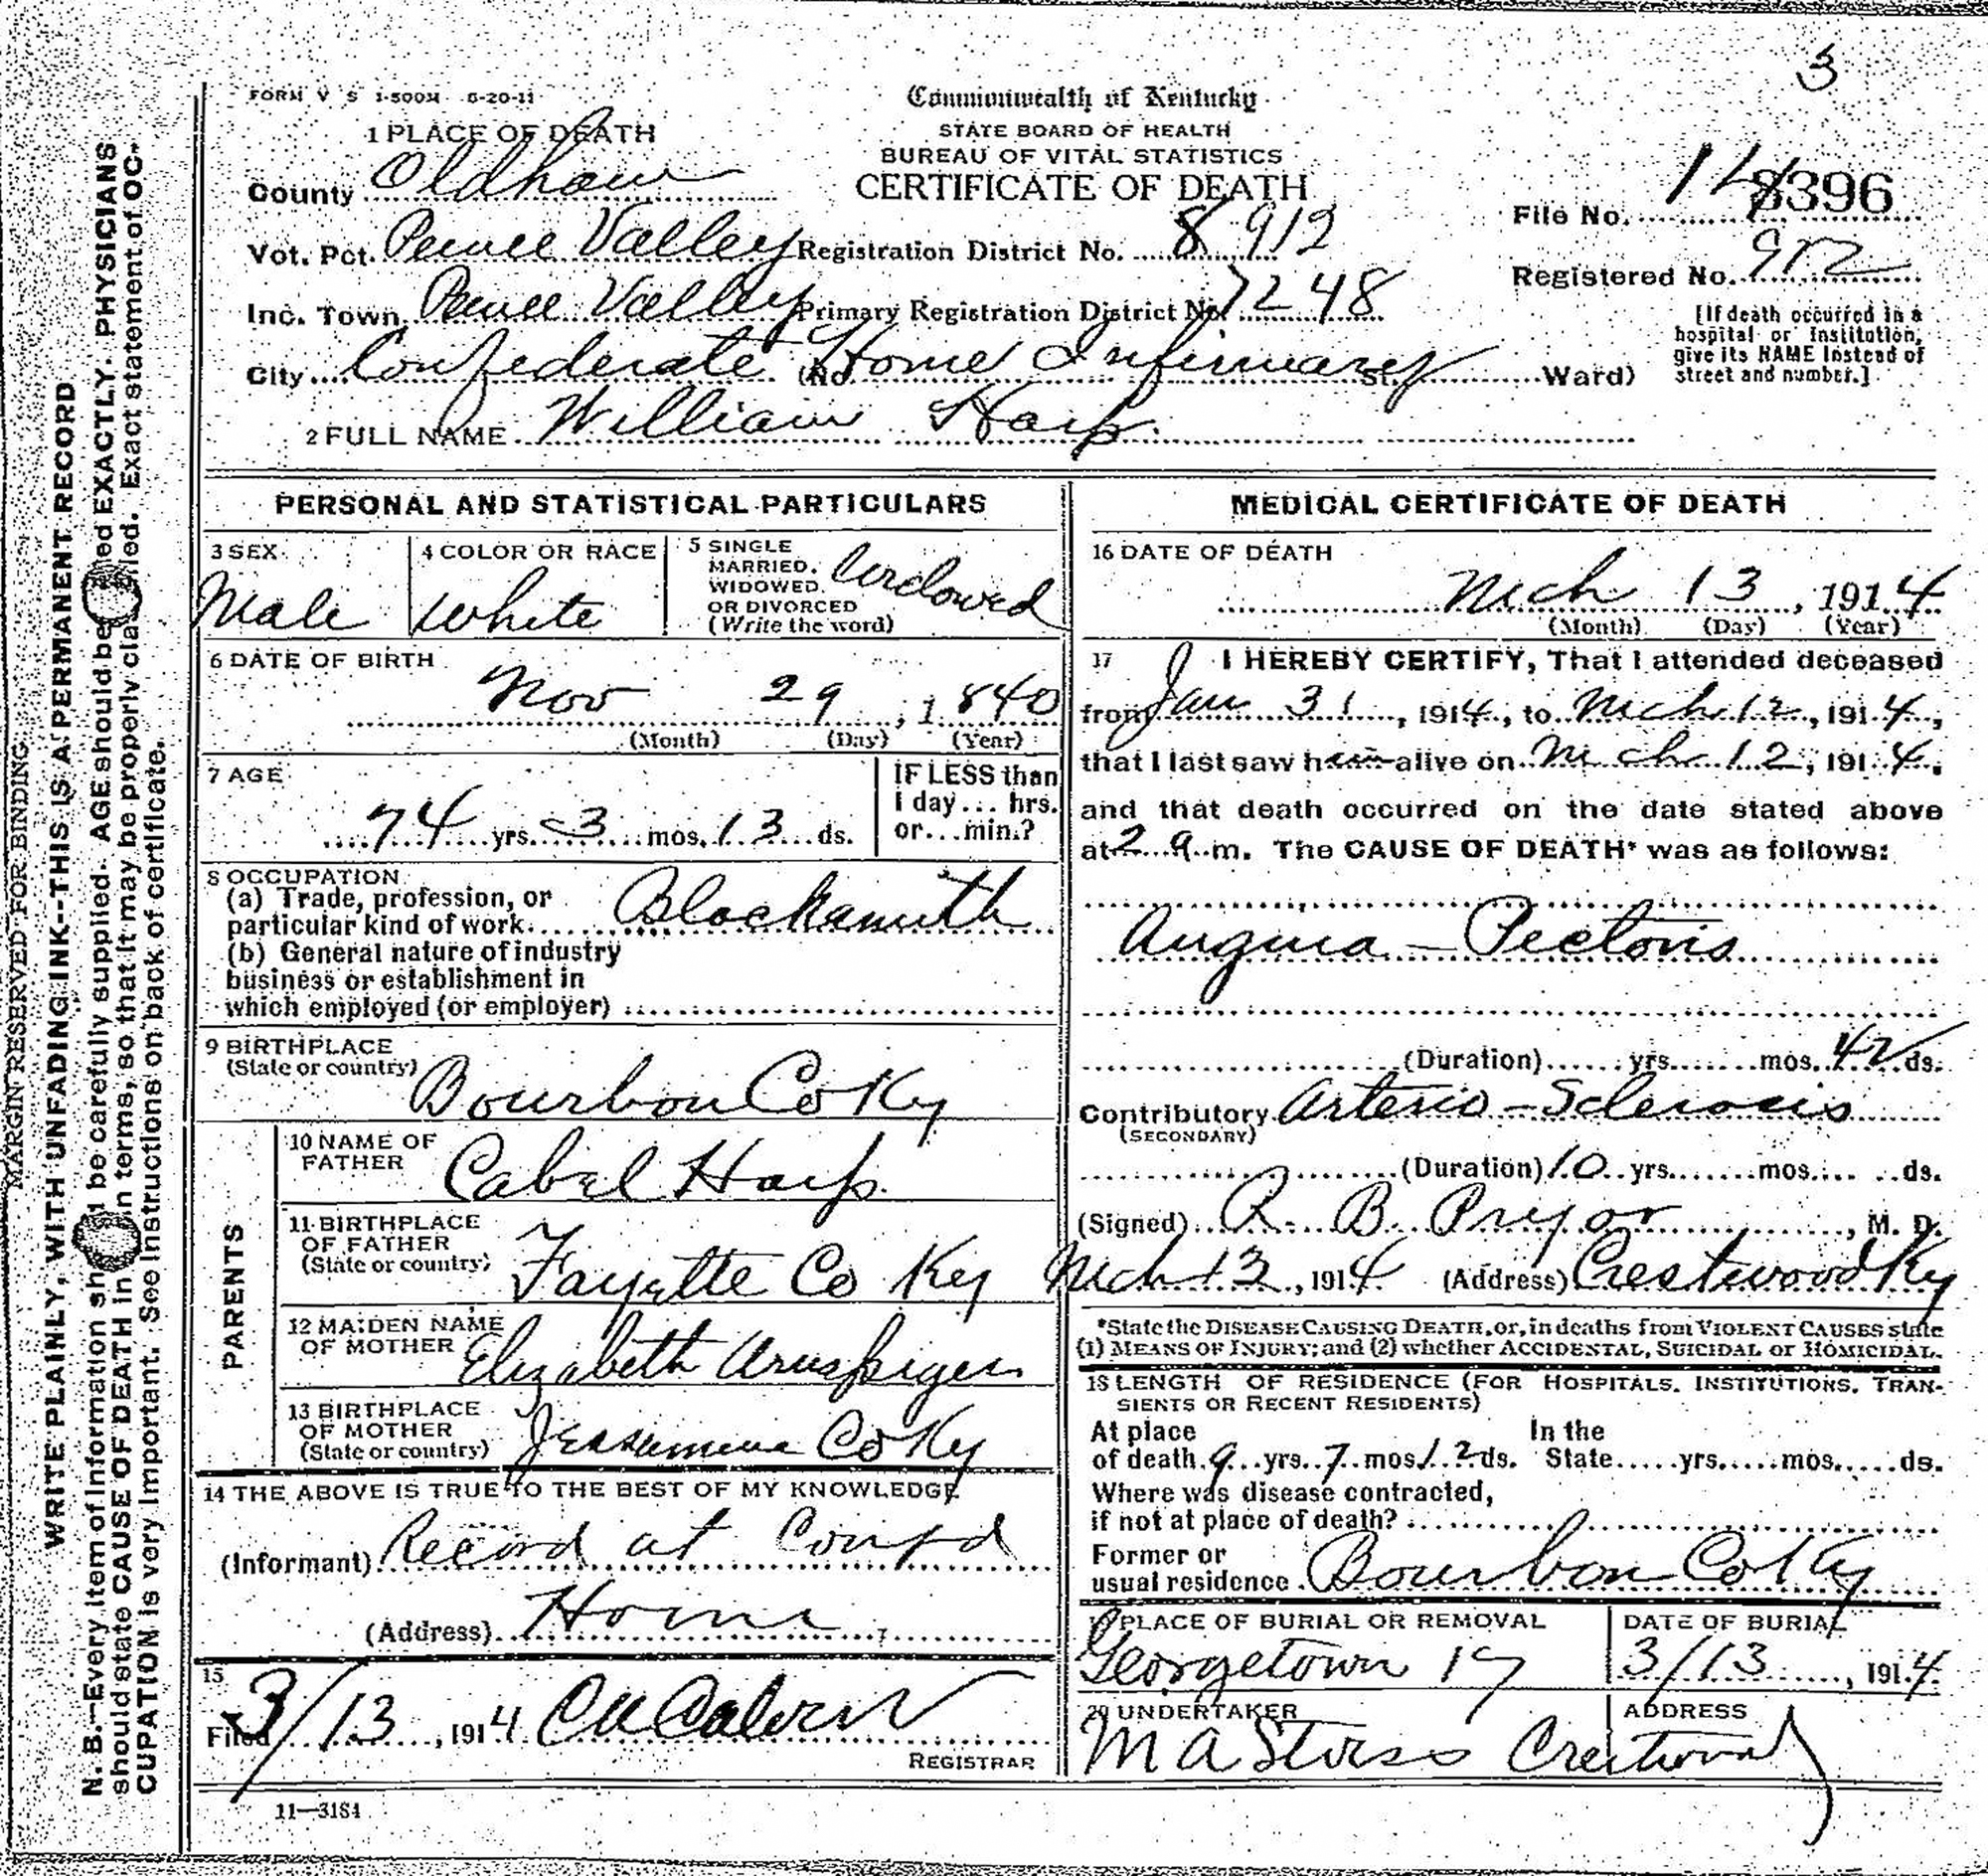 3
FORM V S 1-500M 6-20-11
Commonwealth of Kentucky
STATE BOARD OF HEALTH
BUREAU OF VITAL STATISTICS
CERTIFICATE OF DEATH
1 PLACE OF DEATH
County Oldham
Vot. Pct. Pewee Valley Registration District No. 8 912
Inc. Town Pewee Valley Primary Registration District No. 7248
City Confederate (No Home Infirmary St. Ward)
File No. 8396
Registered No. 912
[If death occurred in a
hospital or institution,
give its NAME instead of
street and number.]
2 FULL NAME William Harp.
PERSONAL AND STATISTICAL PARTICULARS
3 SEX Male
4 COLOR OR RACE White
5 SINGLE
MARRIED.
WIDOWED.
OR DIVORCED
(Write the word) Widowed
6 DATE OF BIRTH
Nov 29, 1840
(Month) (Day) (Year)
7 AGE
74 yrs. 3 mos. 13 ds.
IF LESS than
1 day... hrs.
or...min.?
8 OCCUPATION
(a) Trade, profession, or
particular kind of work Blacksmith
(b) General nature of industry
business or establishment in
which employed (or employer)
9 BIRTHPLACE
(State or country) Bourbon Co Ky
PARENTS
10 NAME OF
FATHER Cabel Harp.
11 BIRTHPLACE
OF FATHER
(State or country) Fayette Co Ky
12 MAIDEN NAME
OF MOTHER Elizabeth
13 BIRTHPLACE
OF MOTHER
(State or country) Jessamine Co Ky
14 THE ABOVE IS TRUE TO THE BEST OF MY KNOWLEDGE
(Informant) Record at Confd
(Address) Home
15
Filed 3/13, 1914
REGISTRAR
11—3184
MEDICAL CERTIFICATE OF DEATH
16 DATE OF DEATH
Mch 13, 1914
(Month) (Day) (Year)
17 I HEREBY CERTIFY, That I attended deceased
from Jan 31, 1914, to Mch 12, 1914,
that I last saw him alive on Mch 12, 1914,
and that death occurred on the date stated above
at 2 a. m. The CAUSE OF DEATH* was as follows:
Angina - Pectoris
(Duration) yrs. mos. 42 ds.
Contributory Arterio-Sclerosis
(SECONDARY)
(Duration) 10 yrs. mos. ds.
(Signed) R. B. Pryor, M. D.
Mch 13, 1914 (Address) Crestwood Ky
*State the DISEASE CAUSING DEATH, or, in deaths from VIOLENT CAUSES state
(1) MEANS OF INJURY; and (2) whether ACCIDENTAL, SUICIDAL or HOMICIDAL.
18 LENGTH OF RESIDENCE (FOR HOSPITALS, INSTITUTIONS, TRAN-
SIENTS OR RECENT RESIDENTS)
At place
of death 9 yrs. 7 mos. 12 ds.
In the
State yrs. mos. ds.
Where was disease contracted,
if not at place of death?
Former or
usual residence Bourbon Co Ky
PLACE OF BURIAL OR REMOVAL
Georgetown Ky
DATE OF BURIAL
3/13, 1914
20 UNDERTAKER
M A Stoess
ADDRESS
Crestwood
MARGIN RESERVED FOR BINDING
WRITE PLAINLY, WITH UNFADING INK--THIS IS A PERMANENT RECORD
N. B.—Every item of information should be carefully supplied. AGE should be stated EXACTLY. PHYSICIANS
should state CAUSE OF DEATH in plain terms, so that it may be properly classified. Exact statement of OC-
CUPATION is very important. See instructions on back of certificate.